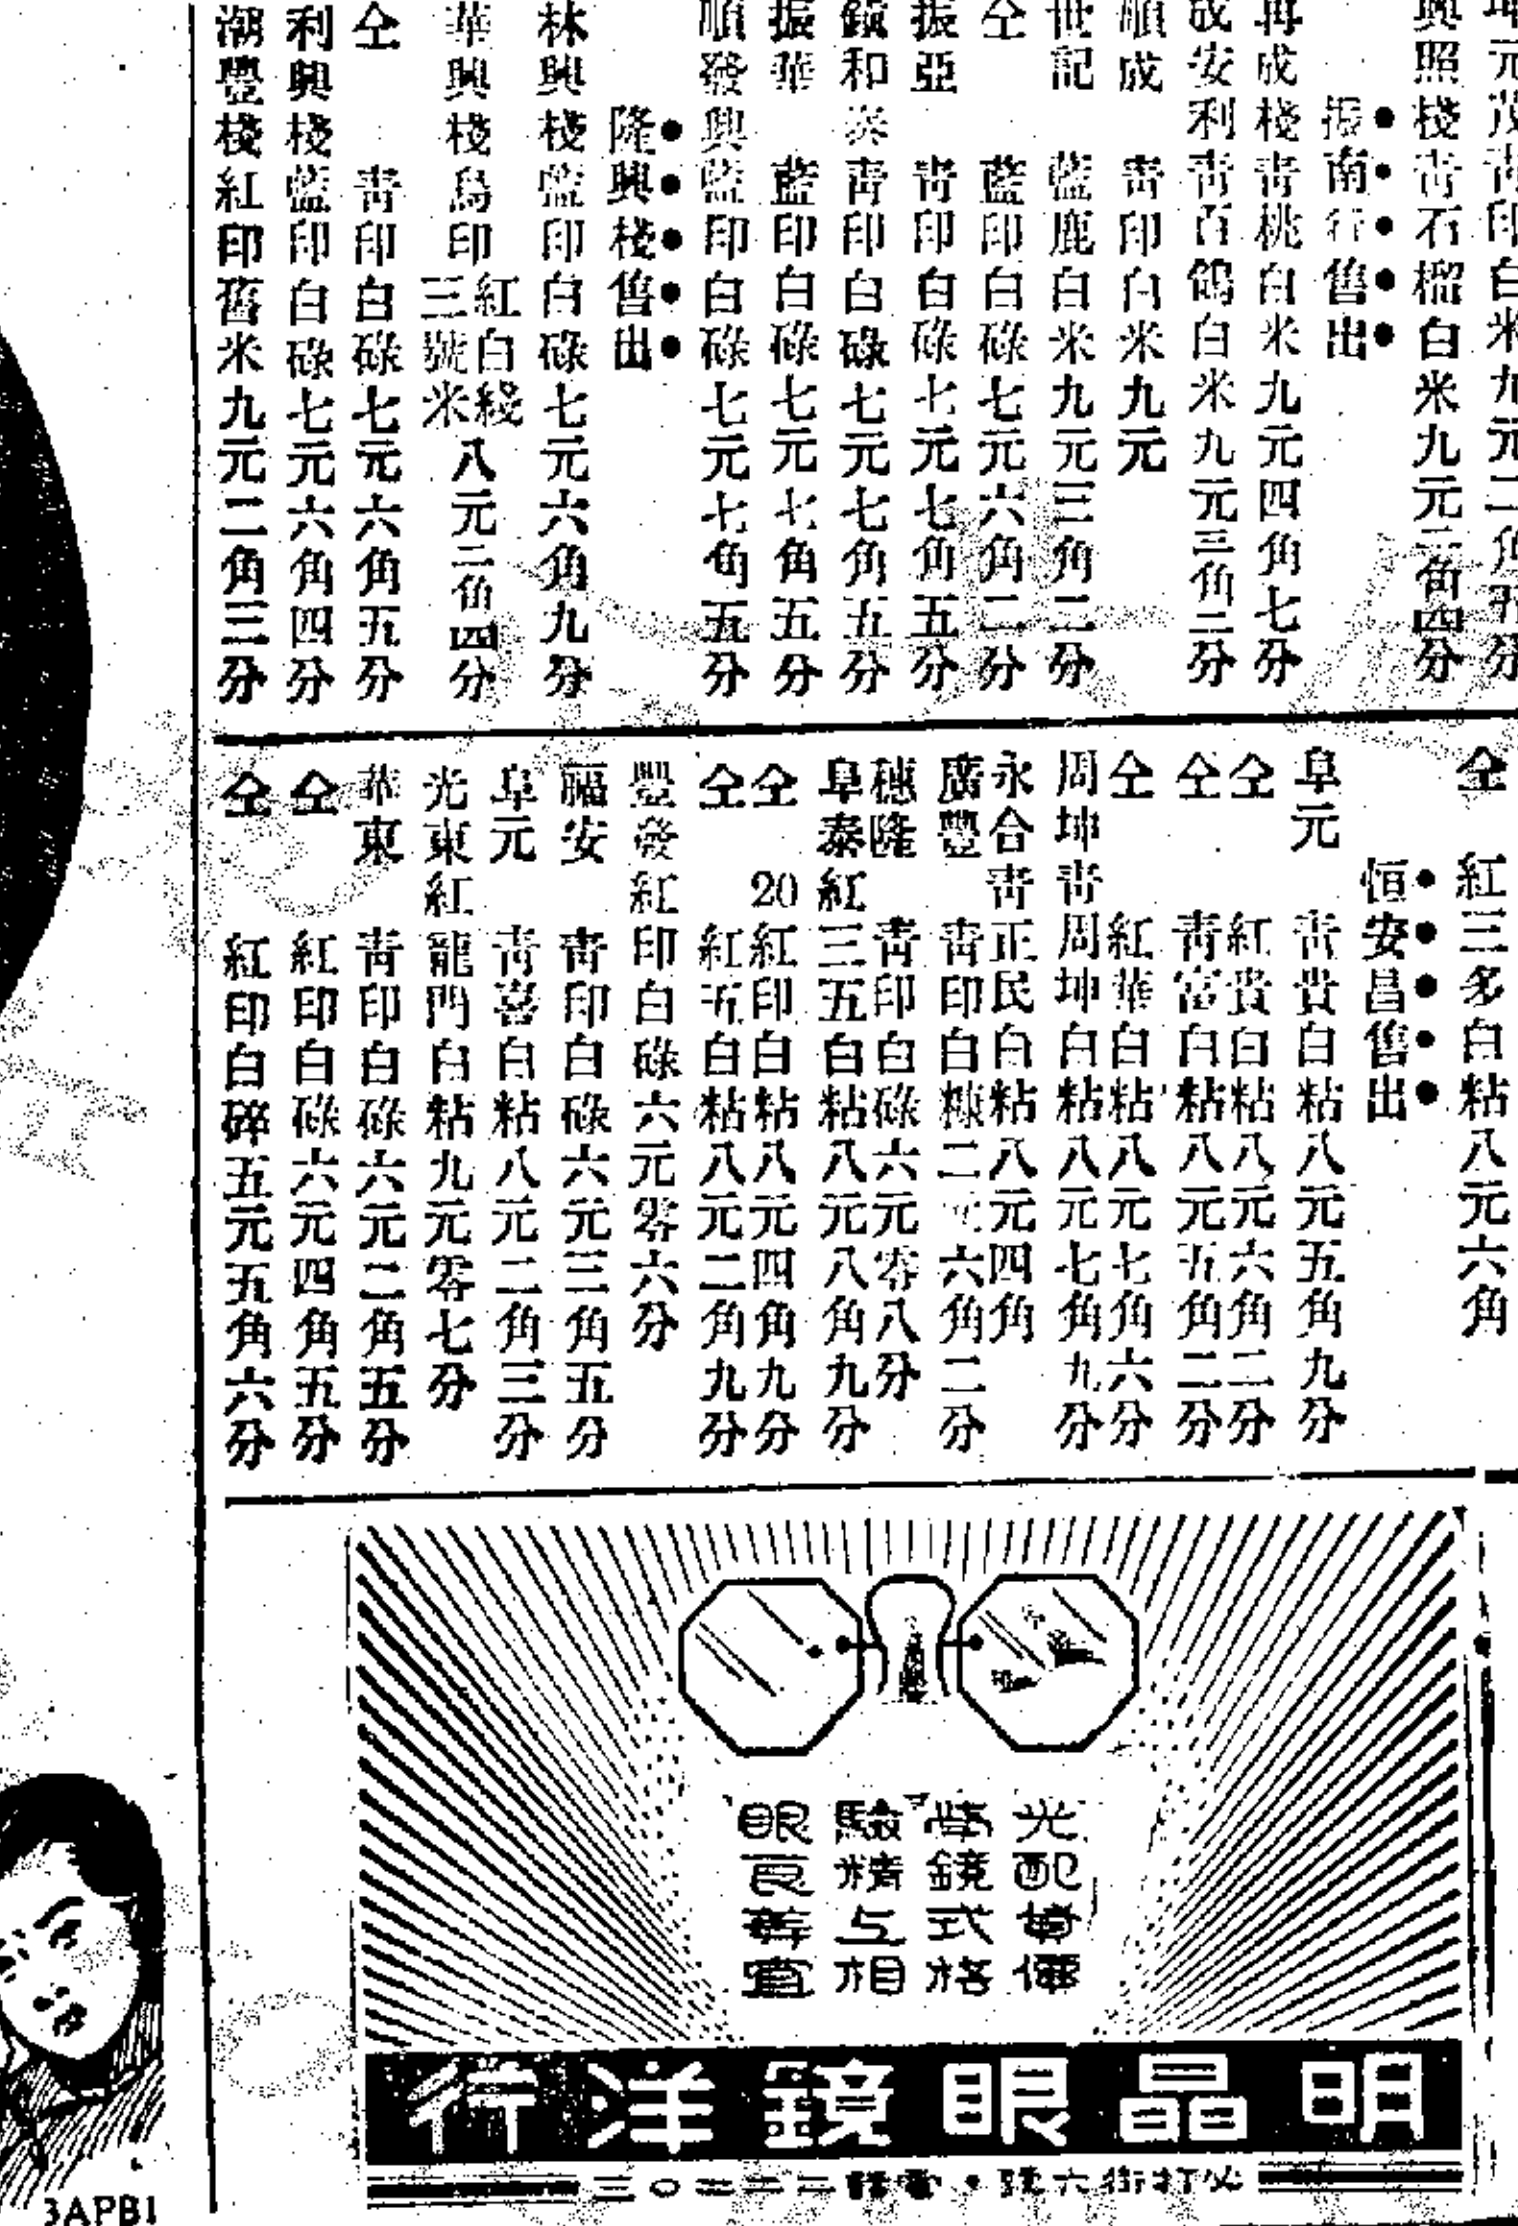 坤元茂青印白米九元二角五分
興照棧青石榴白米九元二角四分
振南行售出
再成棧青桃白米九元四角七分
成安利青百鴿白米九元三角二分
順成 青印白米九元
世記 藍鹿白米九元三角二分
仝 藍印白碌七元六角二分
振亞 青印白碌七元七角五分
鎮和泰青印白碌七元七角五分
振華 藍印白碌七元七角五分
順發興藍印白碌七元七角五分
隆興棧售出
林興棧藍印白碌七元六角九分
華興棧島印紅白綫三號米八元二角四分
仝 青印白碌七元六角五分
利興棧藍印白碌七元六角四分
潮豐棧紅印舊米九元二角三分
仝 紅三多白粘八元六角
恒安昌售出
阜元 青貴白粘八元五角九分
仝 紅貴白粘八元六角二分
仝 青富白粘八元五角二分
仝 紅華白粘八元七角六分
周坤青周坤白粘八元七角九分
永合青正民白粘八元四角
廣豐 青印白糠二元六角二分
穗隆 青印白碌六元零八分
阜泰紅三五白粘八元八角九分
仝 20紅印白粘八元四角九分
仝 紅五白粘八元二角九分
豐發紅印白碌六元零六分
福安 青印白碌六元三角五分
阜元 青喜白粘八元二角三分
光東紅龍門白粘九元零七分
華東 青印白碌六元二角五分
仝 紅印白碌六元四角五分
仝 紅印白碎五元五角六分
光配
學鏡式格
驗精 相
眼良 宜
明晶眼鏡洋行
必打街六號・電話二二七〇三
3APB1